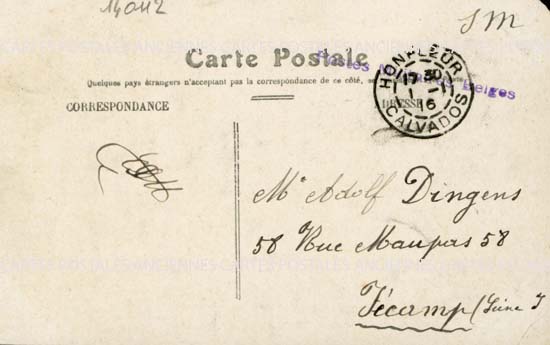 14042
S M
Carte Postale
Quelques pays étrangers n'acceptant pas la correspondance de ce côté, se
CORRESPONDANCE
ADRESSE
HONFLEUR
17 30
1 - 1
16
CALVADOS
Postes Belges
Mr Adolf Dingens
58 Rue Maupas 58
Fécamp (Seine I
CARTES POSTALES ANCIENNES